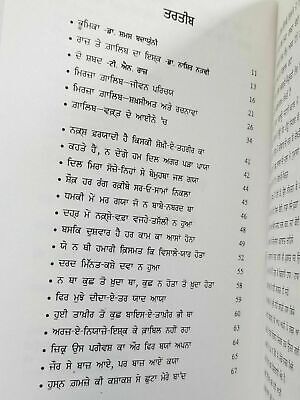 ਤਰਤੀਬ
• ਭੂਮਿਕਾ -ਡਾ. ਸ਼ਮਸ ਬਦਾਯੂੰਨੀ
• ਰਾਜ਼ ਤੇ ਗ਼ਾਲਿਬ ਦਾ ਇਸ਼ਕ - ਡਾ. ਨਾਸ਼ਿਰ ਨਕਵੀ 11
• ਦੋ ਸ਼ਬਦ -ਟੀ. ਐਨ. ਰਾਜ਼ 13
• ਮਿਰਜ਼ਾ ਗ਼ਾਲਿਬ-ਜੀਵਨ ਪਰਿਚਯ 16
• ਮਿਰਜ਼ਾ ਗ਼ਾਲਿਬ-ਸ਼ਖ਼ਸੀਅਤ ਅਤੇ ਰਚਨਾਵਾਂ 21
• ਗ਼ਾਲਿਬ-ਵਕ਼ਤ ਦੇ ਆਈਨੇ 'ਚ 26
• ਨਕ਼ਸ਼ ਫ਼ਰਯਾਦੀ ਹੈ ਕਿਸਕੀ ਸ਼ੋਖ਼ੀ-ਏ-ਤਹਰੀਰ ਕਾ 34
• ਕਹਤੇ ਹੈਂ, ਨ ਦੇਂਗੇ ਹਮ ਦਿਲ ਅਗਰ ਪੜਾ ਪਾਯਾ 36
• ਦਿਲ ਮਿਰਾ ਸੋਜ਼ੇ-ਨਿਹਾਂ ਸੇ ਬੇਮੁਹਾਬਾ ਜਲ ਗਯਾ 37
• ਸ਼ੌਕ਼ ਹਰ ਰੰਗ ਰਕ਼ੀਬੇ ਸਰ-ਓ-ਸਾਮਾਂ ਨਿਕਲਾ 39
• ਧਮਕੀ ਮੇਂ ਮਰ ਗਯਾ ਜੋ ਨ ਬਾਬੇ-ਨਬਰਦ ਥਾ 41
• ਦਹ੍ਰ ਮੇਂ ਨਕ਼ਸ਼ੇ-ਵਫ਼ਾ ਵਜਹੇ-ਤਸੱਲੀ ਨ ਹੁਆ 43
• ਬਸਕਿ ਦੁਸ਼ਵਾਰ ਹੈ ਹਰ ਕਾਮ ਕਾ ਆਸਾਂ ਹੋਨਾ 45
• ਯੇ ਨ ਥੀ ਹਮਾਰੀ ਕਿਸਮਤ ਕਿ ਵਿਸਾਲੇ-ਯਾਰ ਹੋਤਾ 50
• ਦਰਦ ਮਿੰਨਤ-ਕਸ਼ੇ ਦਵਾ ਨ ਹੁਆ 52
• ਨ ਥਾ ਕੁਛ ਤੋ ਖ਼ੁਦਾ ਥਾ, ਕੁਛ ਨ ਹੋਤਾ ਤੋ ਖ਼ੁਦਾ ਹੋਤਾ 55
• ਫਿਰ ਮੁਝੇ ਦੀਦਾ-ਏ-ਤਰ ਯਾਦ ਆਯਾ 58
• ਹੁਈ ਤਾਖ਼ੀਰ ਤੋ ਕੁਛ ਬਾਇਸੇ-ਤਾਖ਼ੀਰ ਭੀ ਥਾ 60
• ਅਰਜ਼-ਏ-ਨਿਯਾਜ਼ੇ-ਇਸ਼ਕ ਕੇ ਕ਼ਾਬਿਲ ਨਹੀਂ ਰਹਾ 62
• ਜ਼ਿਕ੍ਰ ਉਸ ਪਰੀਵਸ਼ ਕਾ ਔਰ ਫਿਰ ਬਯਾਂ ਅਪਨਾ 64
• ਜੌਰ ਸੇ ਬਾਜ਼ ਆਏ, ਪਰ ਬਾਜ਼ ਆਏਂ ਕਯਾ 65
• ਹੁਸਨ ਗ਼ਮਜ਼ੇ ਕੀ ਕਸ਼ਾਕਸ਼ ਸੇ ਛੁਟਾ ਮੇਰੇ ਬਾ'ਦ 67